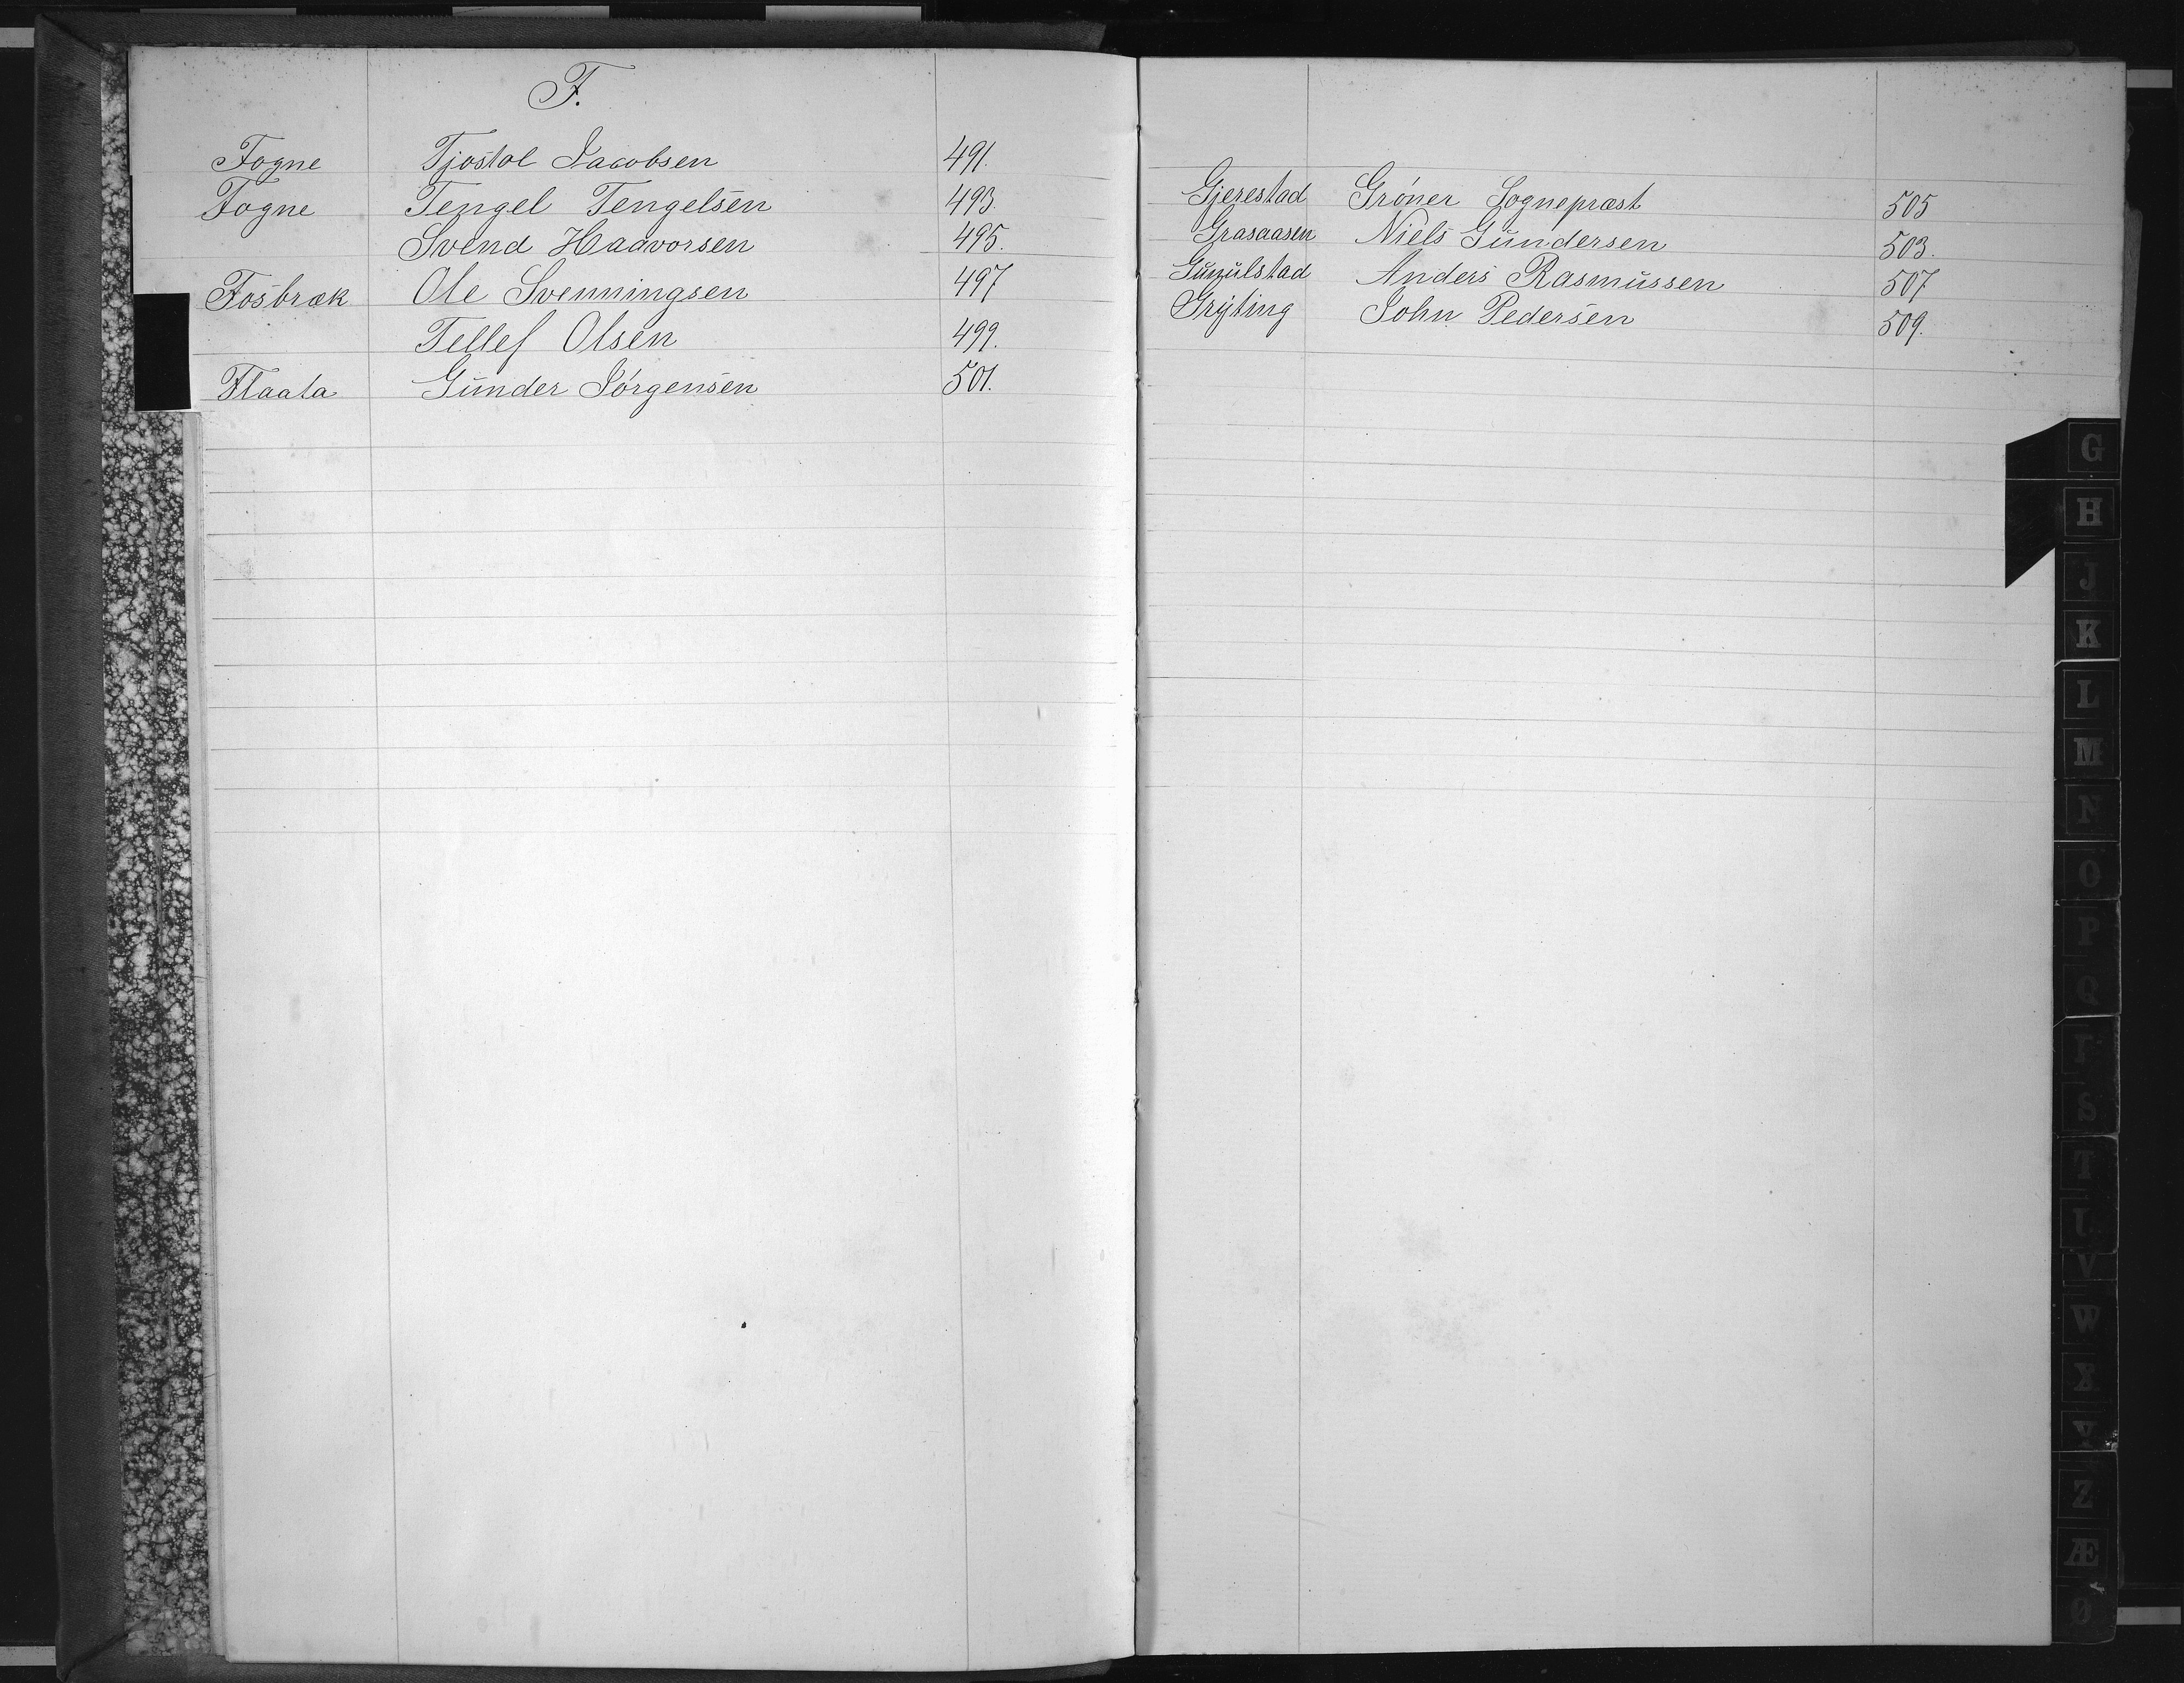 F.
Fogne Tjostol Jacobsen 491.
Fogne Tengel Tengelsen 493.
Svend Haavorsen 495.
Fosbræk Ole Svenningsen 497
Tellef Olsen 499.
Flaata Gunder Jörgensen 501.
Gjerestad Gröner Sognepræst 505
Grasaasen Niels Gundersen 503.
Gunulstad Anders Rasmussen 507
Gryting John Pedersen 509.
G
H
J
K
L
M
N
O
P
Q
R
S
T
U
V
W
X
Y
Z
Æ
Ø